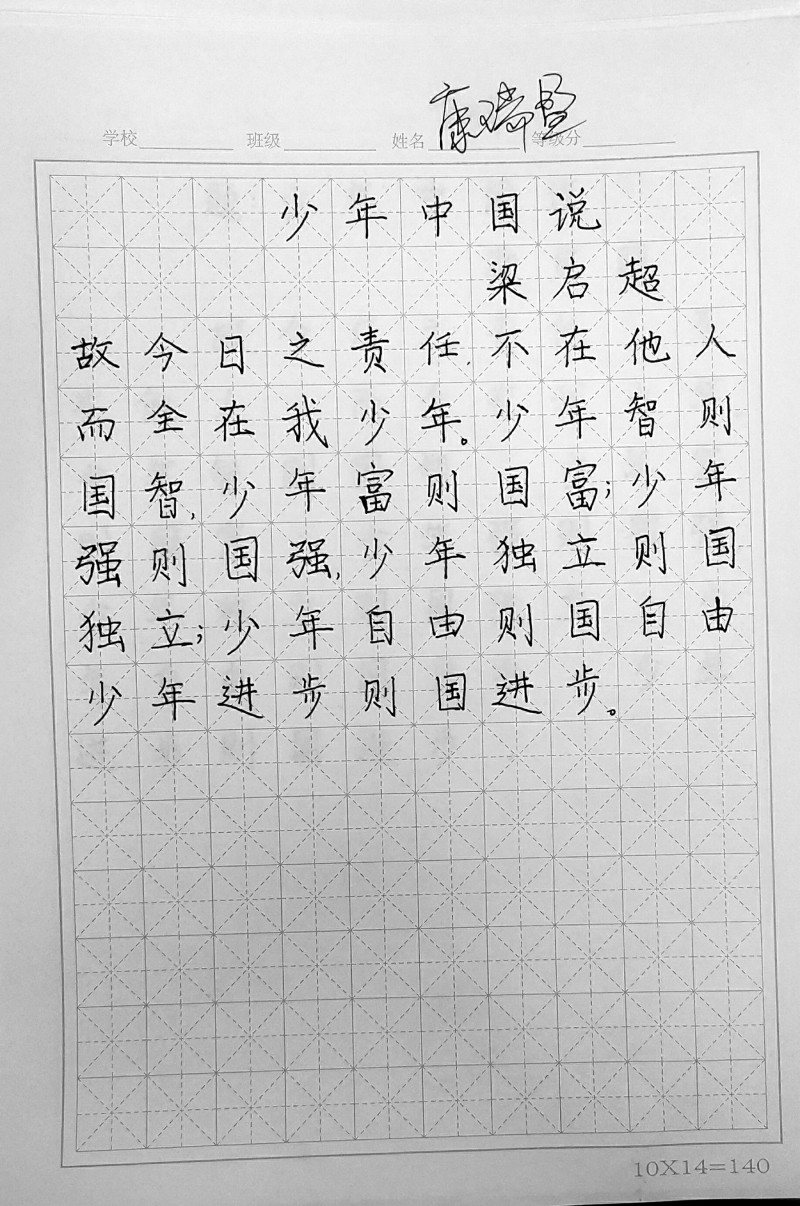 学校 班级 姓名 康瑞 等级分
少年中国说
梁启超
故今日之责任,不在他人
而全在我少年。少年智则
国智,少年富则国富;少年
强则国强,少年独立则国
独立;少年自由则国自由
少年进步则国进步。
10X14=140